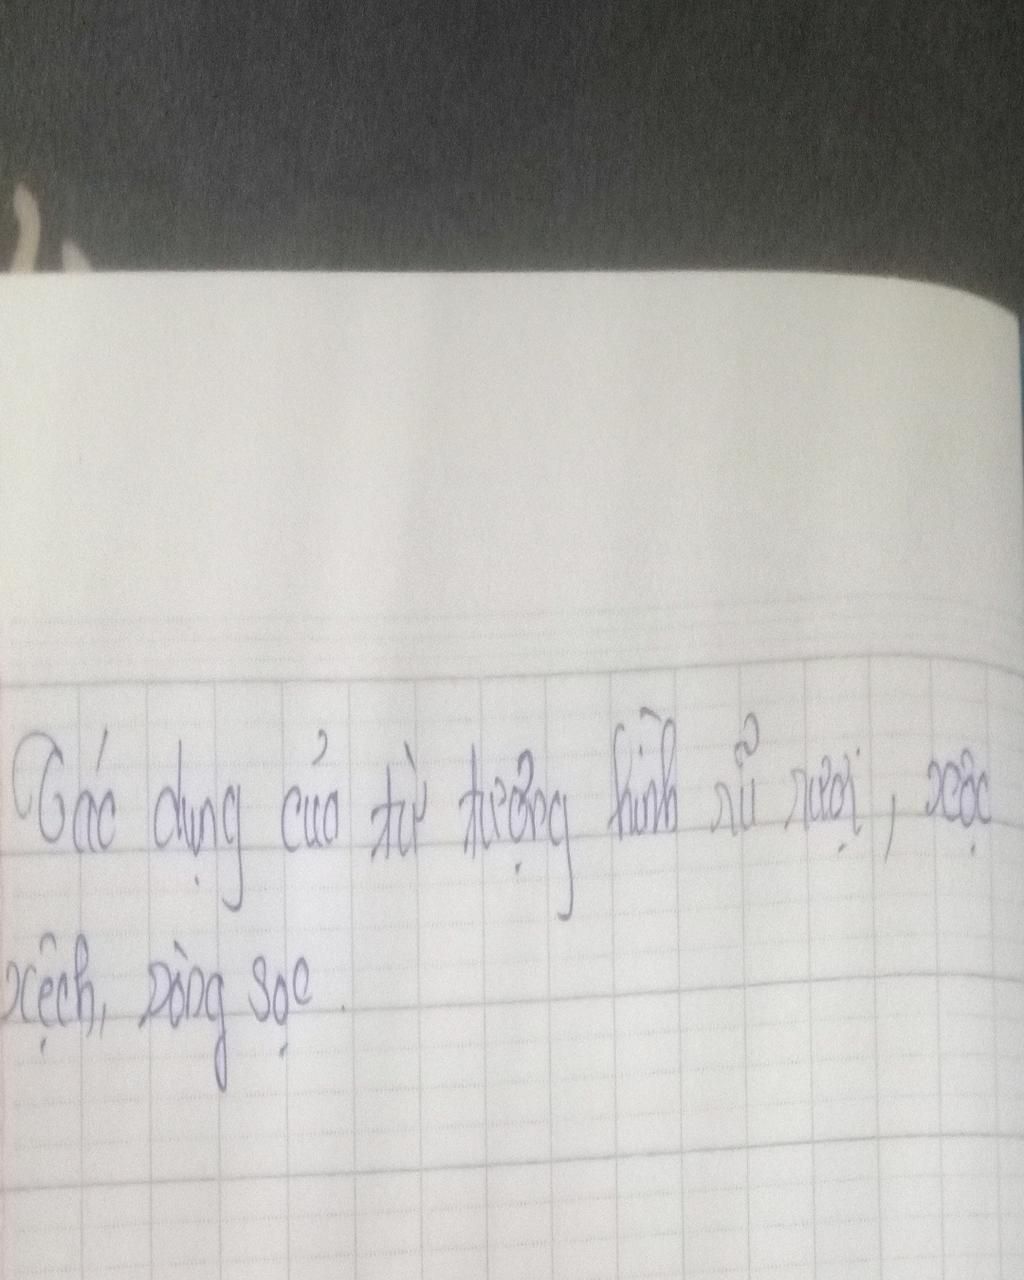 Tác dụng của từ tượng hình rũ rượi, xộc
xệch, sòng sọc.